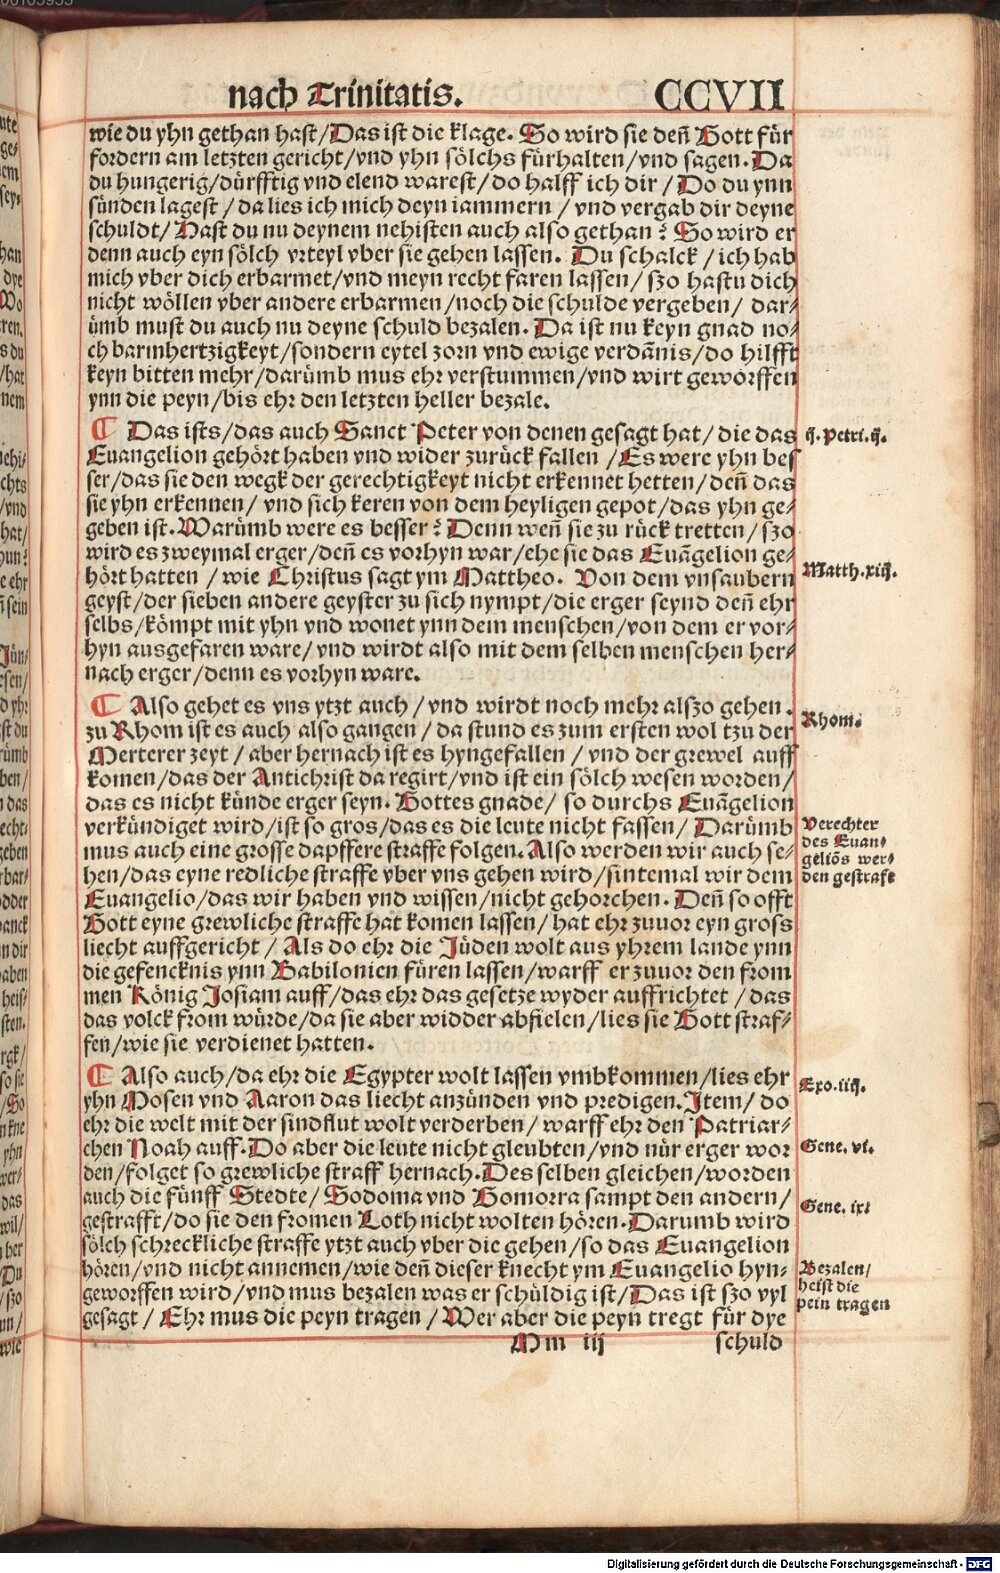 nach Trinitatis. CCVII
wie du yhn gethan hast/Das ist die klage. So wird sie deñ Gott für
fordern am letzten gericht/vnd yhn sölchs fürhalten/vnd sagen. Da
du hungerig/dürfftig vnd elend warest/do halff ich dir/Do du ynn
sünden lagest/da lies ich mich deyn iammern/vnd vergab dir deyne
schuldt/Hast du nu deynem nehisten auch also gethan? So wird er
denn auch eyn sölch vrteyl vber sie gehen lassen. Du schalck/ich hab
mich vber dich erbarmet/vnd meyn recht faren lassen/szo hastu dich
nicht wöllen vber andere erbarmen/noch die schulde vergeben/dar/
ümb must du auch nu deyne schuld bezalen. Da ist nu keyn gnad no/
ch barmhertzigkeyt/sondern eytel zorn vnd ewige verdãnis/do hilfft
keyn bitten mehr/darümb mus ehr verstummen/vnd wirt geworffen
ynn die peyn/bis ehr den letzten heller bezale.
¶ Das ists/das auch Sanct Peter von denen gesagt hat/die das
ij. Petri.ij.
Euangelion gehört haben vnd wider zurück fallen/Es were yhn bes
ser/das sie den wegk der gerechtigkeyt nicht erkennet hetten/deñ das
sie yhn erkennen/vnd sich keren von dem heyligen gepot/das yhn ge/
geben ist. Warümb were es besser? Denn weñ sie zu rück tretten/szo
wird es zweymal erger/deñ es vorhyn war/ehe sie das Euãgelion ge/
hört hatten/wie Christus sagt ym Mattheo. Von dem vnsaubern
Matth.xiij.
geyst/der sieben andere geyster zu sich nympt/die erger seynd deñ ehr
selbs/kömpt mit yhn vnd wonet ynn dem menschen/von dem er vor/
hyn ausgefaren ware/vnd wirdt also mit dem selben menschen her/
nach erger/denn es vorhyn ware.
¶ Also gehet es vns ytzt auch/vnd wirdt noch mehr alszo gehen.
Rhom.
zu Rhom ist es auch also gangen/da stund es zum ersten wol tzu der
Merterer zeyt/aber hernach ist es hyngefallen/vnd der grewel auff
komen/das der Antichrist da regirt/vnd ist ein sölch wesen worden/
das es nicht künde erger seyn. Gottes gnade/so durchs Euãgelion
verkündiget wird/ist so gros/das es die leute nicht fassen/Darümb
Verechter
des Euan/
geliõs wer/
den gestraft
mus auch eine grosse dapffere straffe folgen. Also werden wir auch se/
hen/das eyne redliche straffe vber vns gehen wird/sintemal wir dem
Euangelio/das wir haben vnd wissen/nicht gehorchen. Deñ so offt
Gott eyne grewliche straffe hat komen lassen/hat ehr zuuor eyn gross
liecht auffgericht/Als do ehr die Jüden wolt aus yhrem lande ynn
die gefencknis ynn Babilonien füren lassen/warff er zuuor den from
men König Josiam auff/das ehr das gesetze wyder auffrichtet/das
das volck from würde/da sie aber widder abfielen/lies sie Gott straf/
fen/wie sie verdienet hatten.
¶ Also auch/da ehr die Egypter wolt lassen vmbkommen/lies ehr
Exo.iiij.
yhn Mosen vnd Aaron das liecht anzünden vnd predigen. Item/do
ehr die welt mit der sindflut wolt verderben/warff ehr den Patriar/
chen Noah auff. Do aber die leute nicht gleubten/vnd nür erger wor
Gene. vi.
den/folget so grewliche straff hernach. Des selben gleichen/worden
auch die fünff Stedte/Sodoma vnd Gomorra sampt den andern/
Gene. ix.
gestrafft/do sie den fromen Loth nicht wolten hören. Darumb wird
sölch schreckliche straffe ytzt auch vber die gehen/so das Euangelion
hören/vnd nicht annemen/wie deñ dieser knecht ym Euangelio hyn/
Bezalen/
heist die
pein tragen
geworffen wird/vnd mus bezalen was er schüldig ist/Das ist szo vyl
gesagt/Ehr mus die peyn tragen/Wer aber die peyn tregt für dye
Mm iij schuld
Digitalisierung gefördert durch die Deutsche Forschungsgemeinschaft - DFG